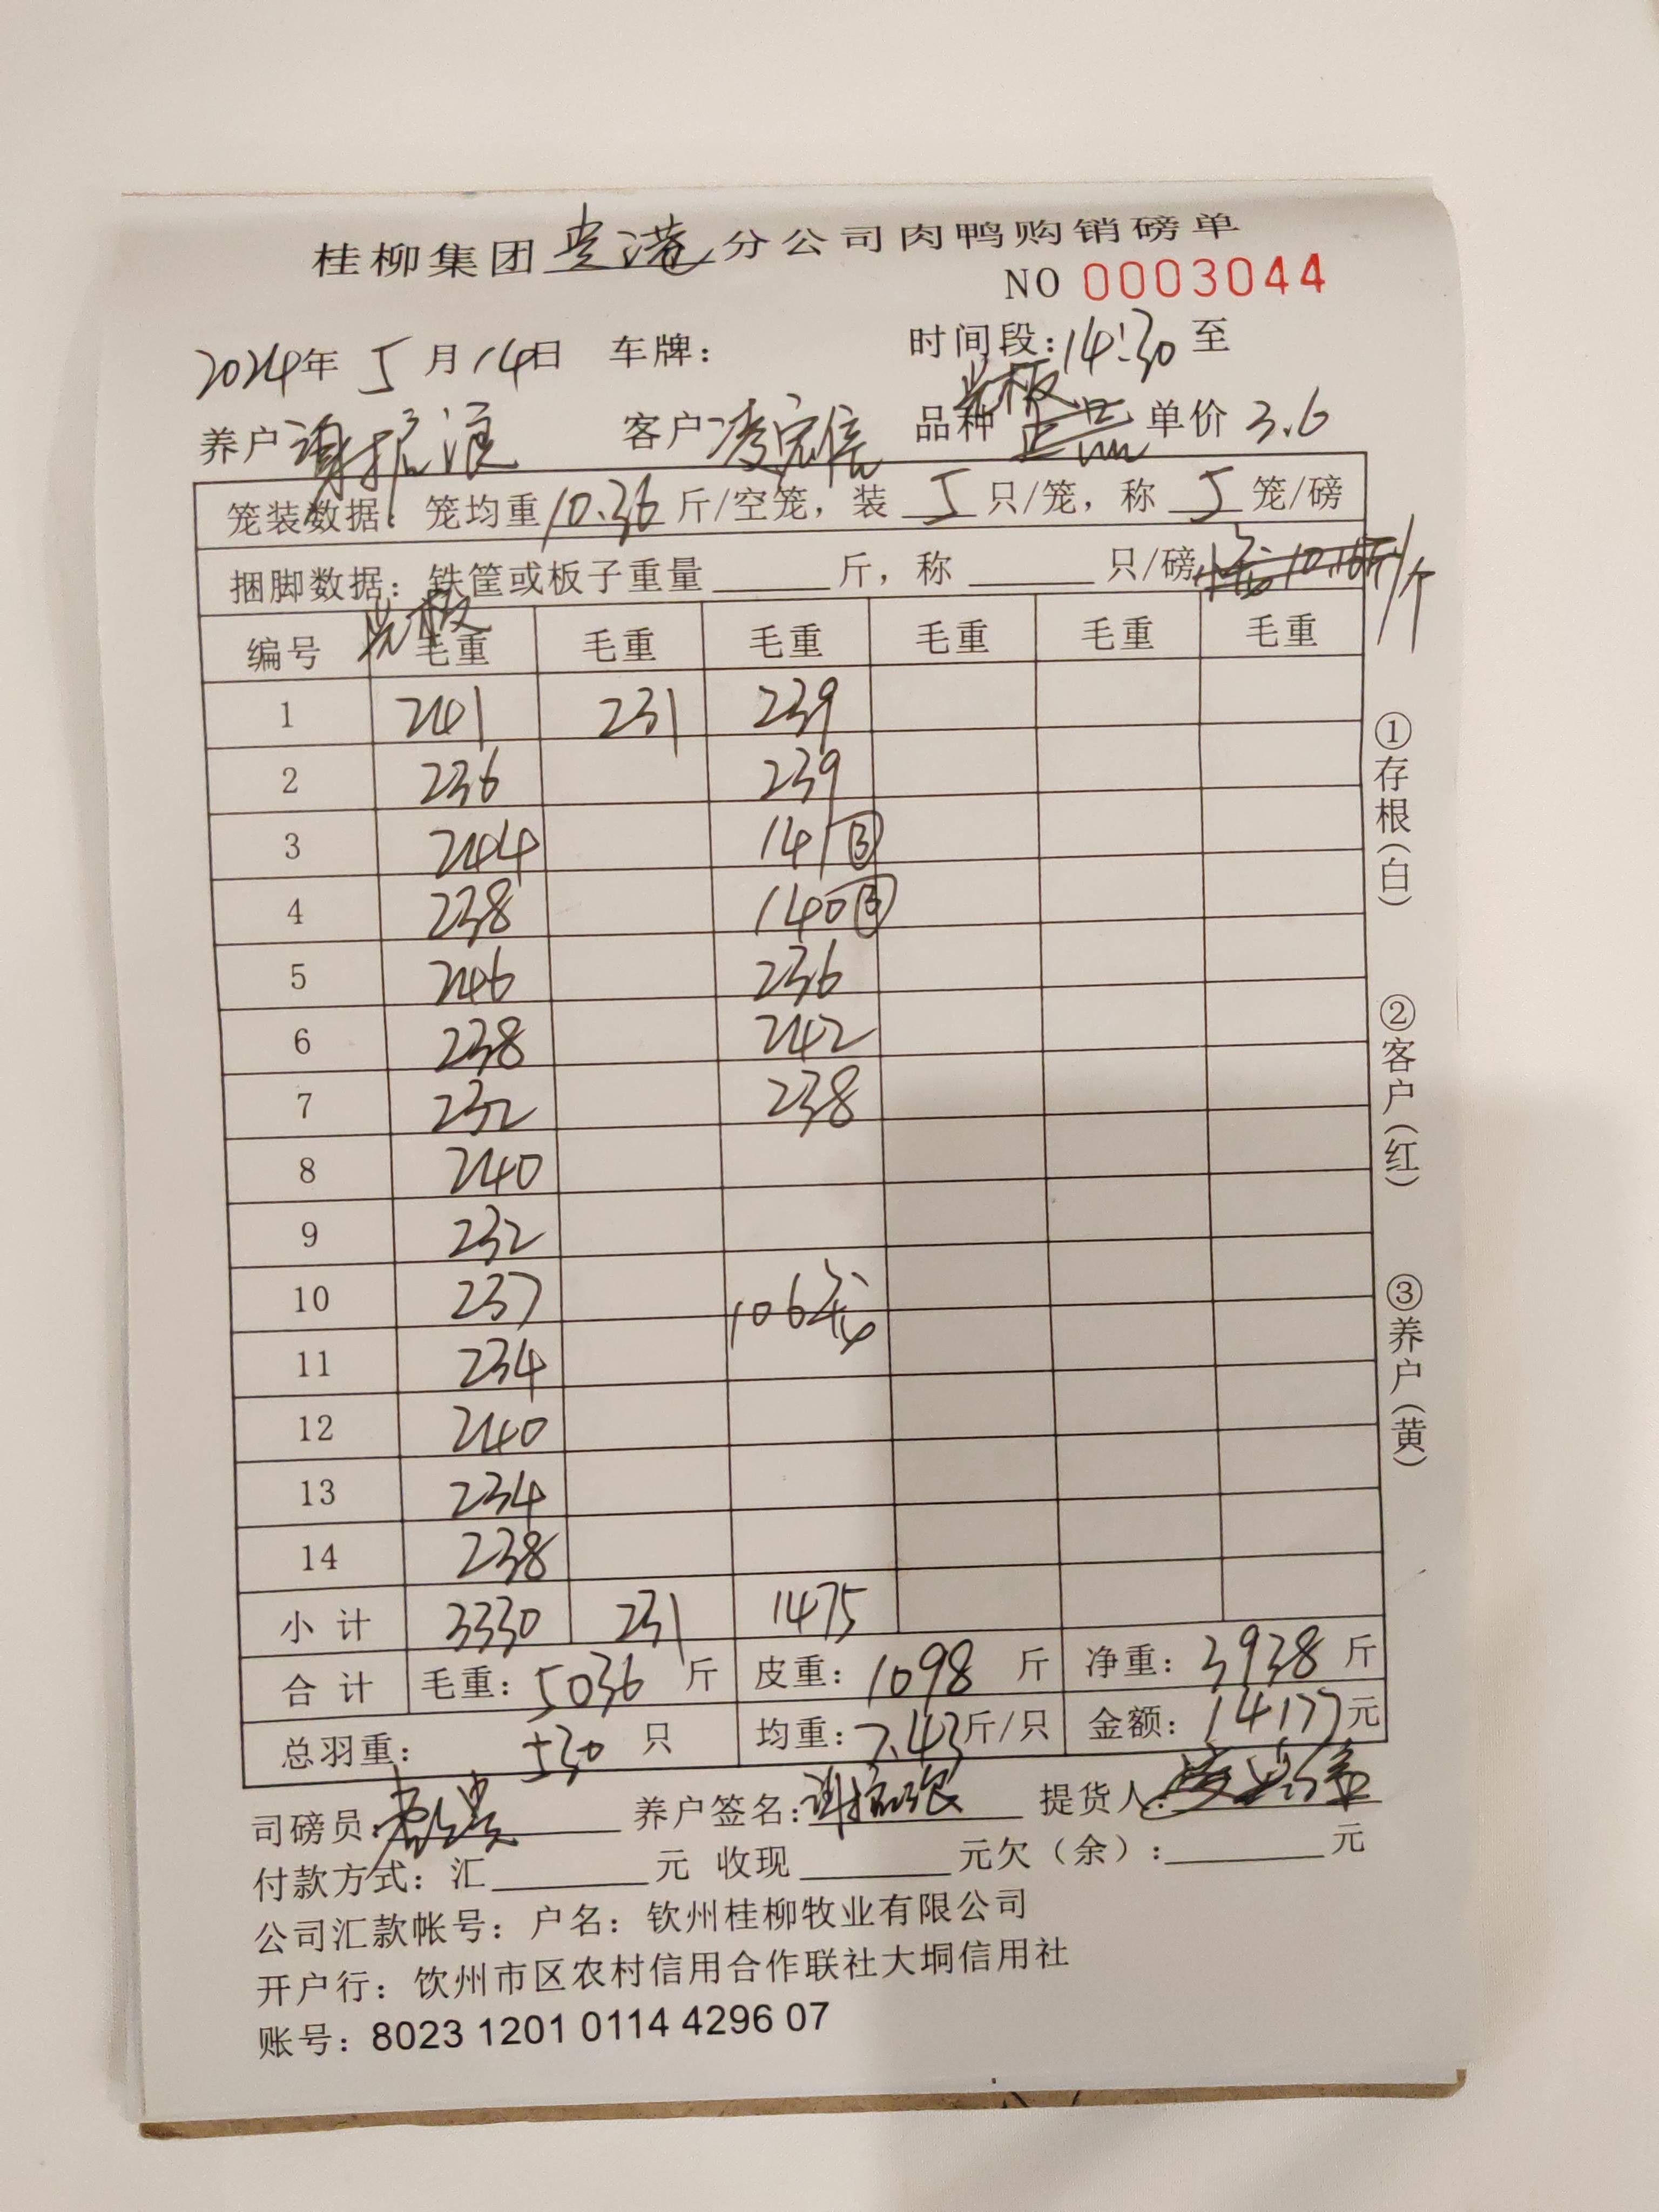 桂柳集团贵港分公司肉鸭购销磅单
NO 0003044
2024年 5月14日 车牌： 时间段：14:30至
养户 客户凌宗信 品种 光板 正品 单价 3.6
笼装数据：笼均重10.36斤/空笼，装5只/笼，称5笼/磅
捆脚数据：铁筐或板子重量 斤，称 只/磅
光板
编号 毛重 毛重 毛重 毛重 毛重 毛重
1 241 231 239
2 236 239
3 244 141③
4 238 140③
5 246 236
6 238 242
7 232 238
8 240
9 232
10 237 106笼
11 234
12 240
13 234
14 238
小计 3330 231 1475
合计 毛重：5036斤 皮重：1098斤 净重：3938斤
总羽重： 530只 均重：7.43斤/只 金额：14177元
司磅员： 养户签名： 提货人：
付款方式：汇 元 收现 元欠（余）： 元
公司汇款帐号：户名：钦州桂柳牧业有限公司
开户行：饮州市区农村信用合作联社大垌信用社
账号：8023 1201 0114 4296 07
①存根（白）
②客户（红）
③养户（黄）